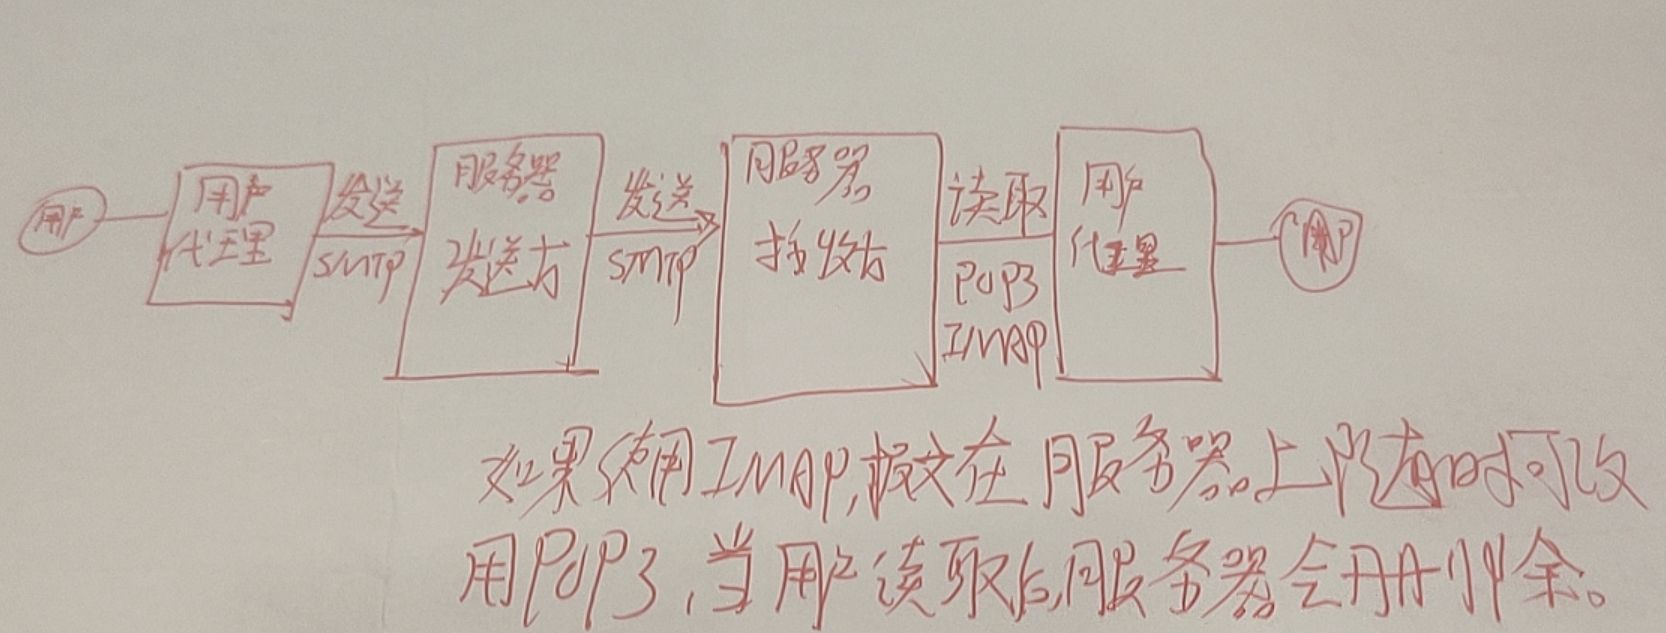 用户
用户
代理
发送
SMTP
服务器
发送方
发送
SMTP
服务器
接收方
读取
POP3
IMAP
用户
代理
用户
如果使用IMAP,报文在服务器上随时可改
用POP3,当用户读取后,服务器会删除。